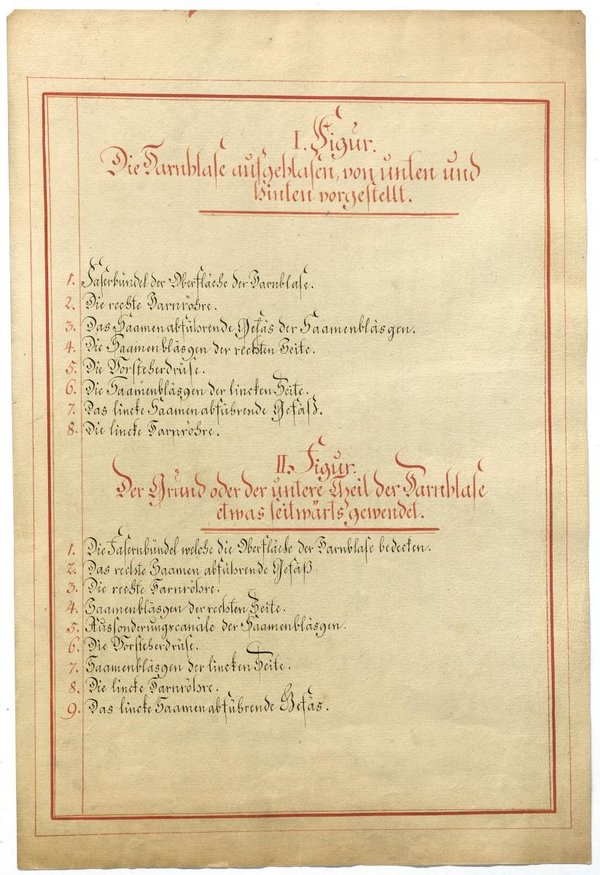 I. Figur.
Die Harnblase aufgeblasen, von unten und
hinten vorgestellt.
1. Faserbündel der Oberfläche der Harnblase.
2. Die rechte Harnröhre.
3. Das Saamenabführende Gefäs der Saamenbläsgen.
4. Die Saamenbläsgen der rechten Seite.
5. Die Vorsteherdrüse.
6. Die Saamenbläsgen der lincken Seite.
7. Das lincke Saamen abführende Gefäß.
8. Die lincke Harnröhre.
II. Figur.
Der Grund oder der untere Theil der Harnblase
etwas seitwärts gewendet.
1. Die Fasernbündel welche die Oberfläche der Harnblase bedecken.
2. Das rechte Saamen abführende Gefäß
3. Die rechte Harnröhre.
4. Saamenbläsgen der rechten Seite.
5. Aussonderungscanäle der Saamenbläsgen.
6. Die Vorsteherdrüse.
7. Saamenbläsgen der lincken Seite.
8. Die lincke Harnröhre.
9. Das lincke Saamen abführende Gefäs.